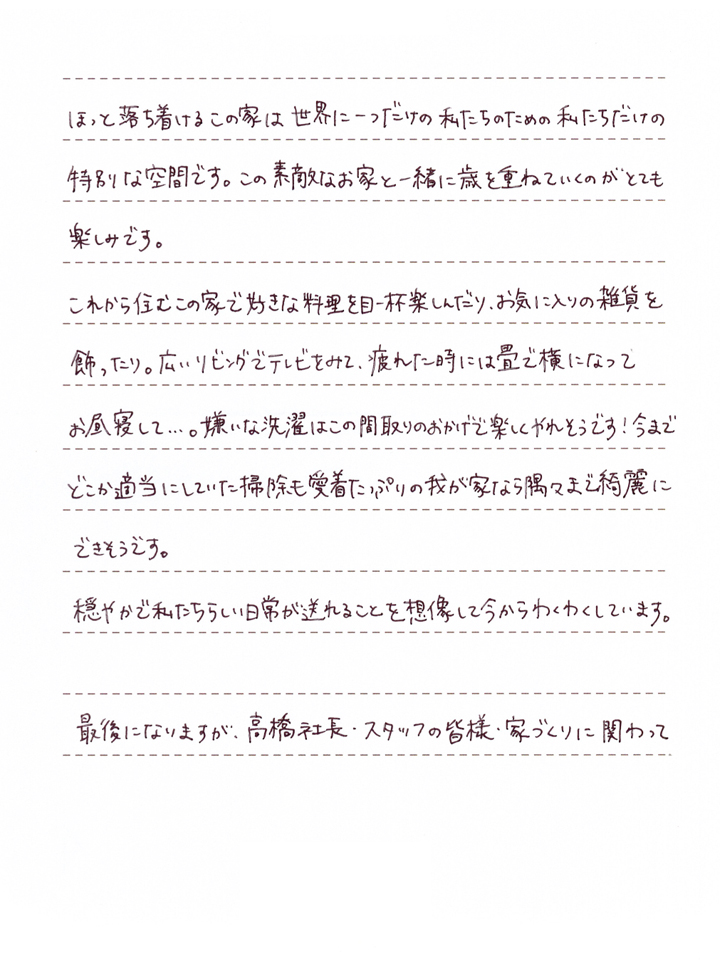 ほっと落ち着けるこの家は世界に一つだけの私たちのための私たちだけの
特別な空間です。この素敵なお家と一緒に歳を重ねていくのがとても
楽しみです。
これから住むこの家で好きな料理を目一杯楽しんだり、お気に入りの雑貨を
飾ったり。広いリビングでテレビをみて、疲れた時には畳で横になって
お昼寝して…。嫌いな洗濯はこの間取りのおかげで楽しくやれそうです！今まで
どこか適当にしていた掃除も愛着たっぷりの我が家なら隅々まで綺麗に
できそうです。
穏やかで私たちらしい日常が送れることを想像して今からわくわくしています。
最後になりますが、高橋社長・スタッフの皆様・家づくりに関わって